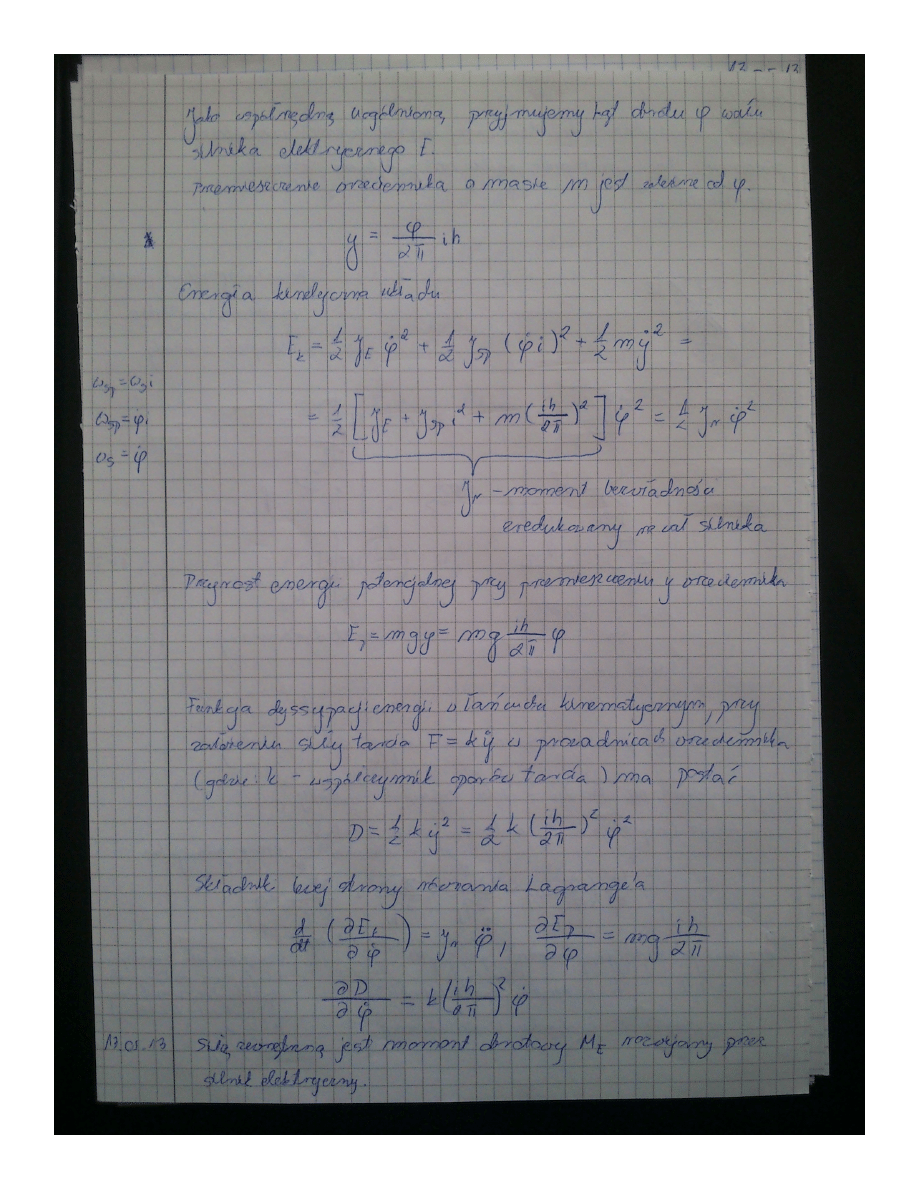 12 -- 12
Jako współrzędną uogólnioną przyjmujemy kąt obrotu φ wału
silnika elektrycznego E.
Przemieszczenie wrzeciennika o masie m jest zależne od φ.
y = φ/2π ih
Energia kinetyczna układu
E_k = 1/2 J_E φ̇² + 1/2 J_śp (φ̇i)² + 1/2 mẏ² =
ω_śp = ω_s i
= 1/2 [J_E + J_śp i² + m(ih/2π)²] φ̇² = 1/2 J_r φ̇²
ω_śp = φ̇i
ω_s = φ̇
J_r - moment bezwładności
zredukowany na wał silnika
Przyrost energii potencjalnej przy przemieszczeniu y wrzeciennika
E_p = mgy = mg ih/2π φ
Funkcja dyssypacji energii w łańcuchu kinematycznym, przy
założeniu siły tarcia F = kẏ w prowadnicach wrzeciennika
(gdzie: k - współczynnik oporów tarcia) ma postać
D = 1/2 kẏ² = 1/2 k (ih/2π)² φ̇²
Składnik lewej strony równania Lagrange'a
d/dt (∂E_k/∂φ̇) = J_r φ̈, ∂E_p/∂φ = mg ih/2π
∂D/∂φ̇ = k(ih/2π)² φ̇
17.01.13 Siłą zewnętrzną jest moment obrotowy M_E rozwijany przez
silnik elektryczny.